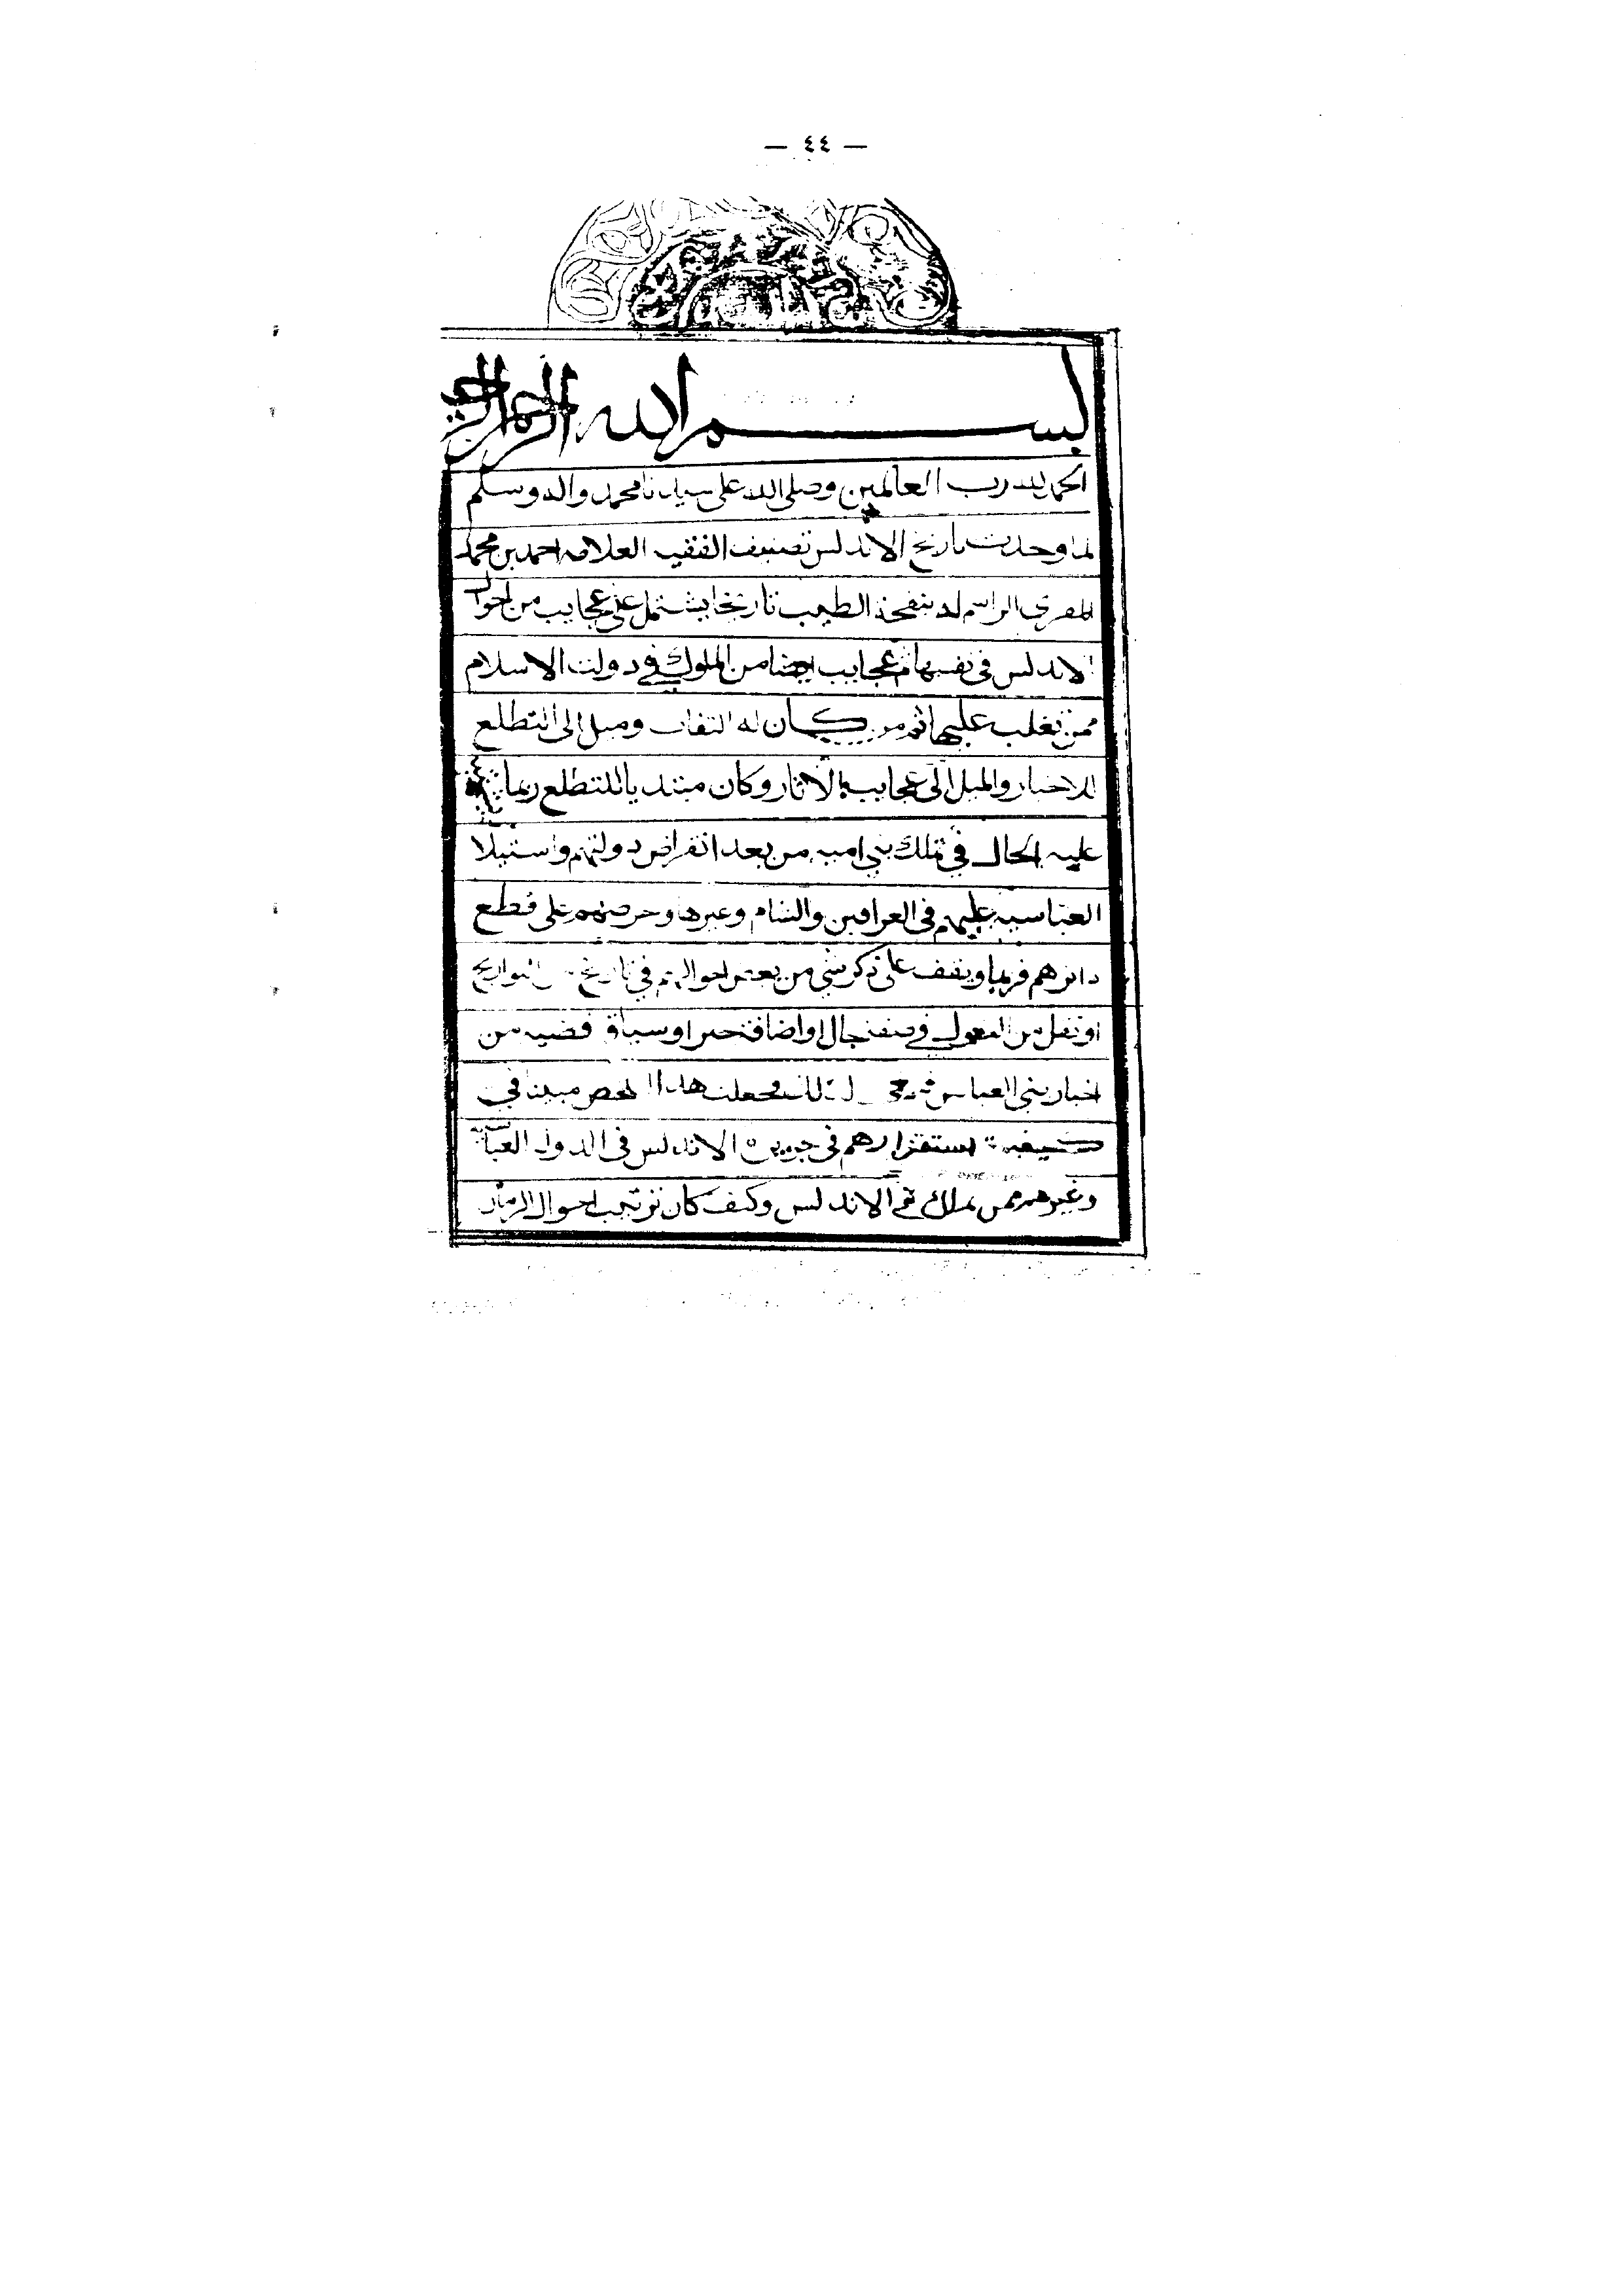 — ٤٤ —
بسم الله الرحمن الرحيم
الحمد لله رب العالمين وصلى الله على سيدنا محمد واله وسلم
لما وجدت تاريخ الاندلس تصنيف الفقيه العلامه احمد بن محمد
المقري الراسم له بنفحة الطيب تاريخا يشتمل على عجايب من احوال
الاندلس في نفسها عجايب ايضا من الملوك في دولت الاسلام
ممن تغلب عليها ثم من كان له التفات وميل الى التطلع
للاخبار والميل الى عجايب الاثار وكان مبتديا للتطلع ربما
عليه الحال في تملك بني اميه من بعد انقراض دولتهم واستيلا
العباسيه عليهم في العراقين والشام وغيرها وحرصهم على قطع
دابرهم فربما ويقف على ذكر شي من بعض احوالهم في تاريخ من التواريخ
او نقل من النقول في صفة حال او اضافة خبر او سياق قضيه من
اخبار بني العباس فجعلت هذا مبينا في
كيفية استقرارهم في جزيرة الاندلس في الدولة العباسية
وغيرهم ممن ملك في الاندلس وكيف كان ترتيب احوال الزمان